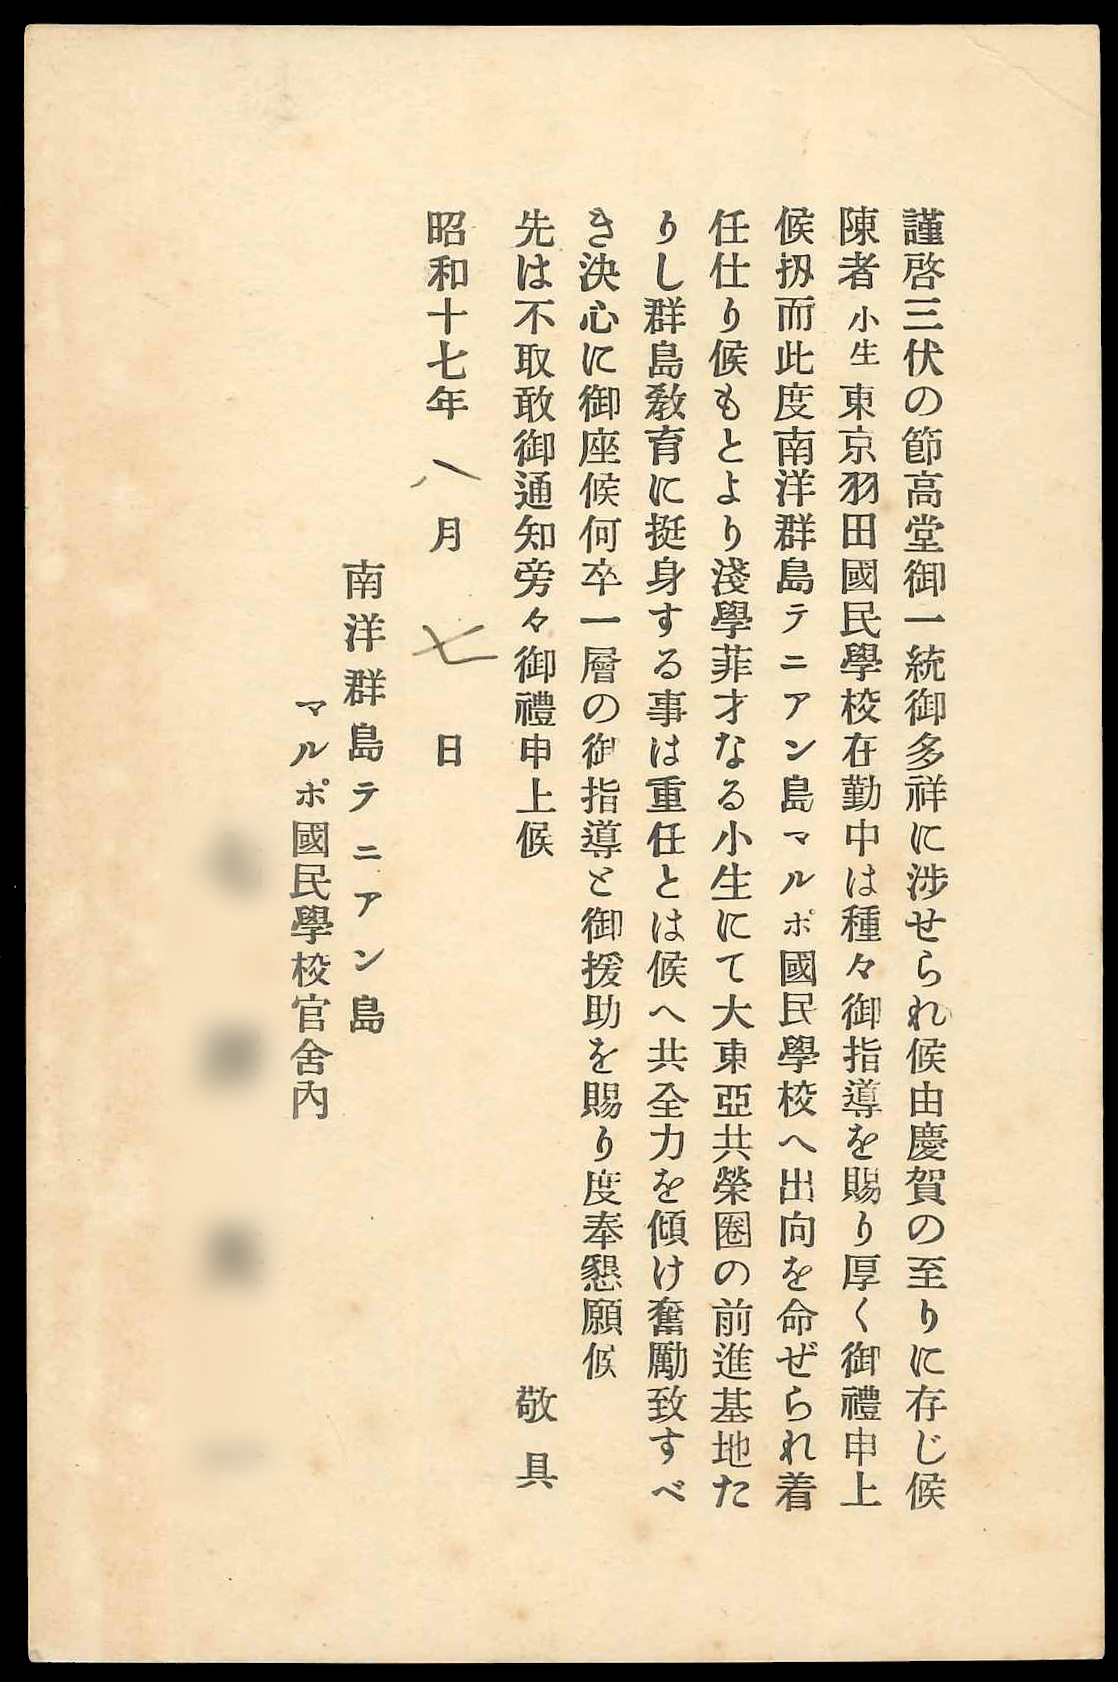 謹啓三伏の節高堂御一統御多祥に涉せられ候由慶賀の至りに存じ候
陳者小生東京羽田國民學校在勤中は種々御指導を賜り厚く御禮申上
候扨而此度南洋群島テニアン島マルポ國民學校へ出向を命ぜられ着
任仕り候もとより淺學菲才なる小生にて大東亞共榮圈の前進基地た
りし群島敎育に挺身する事は重任とは候へ共全力を傾け奮勵致すべ
き決心に御座候何卒一層の御指導と御援助を賜り度奉懇願候
先は不取敢御通知旁々御禮申上候 敬具
昭和十七年八月七日
南洋群島テニアン島
マルポ國民學校官舍內